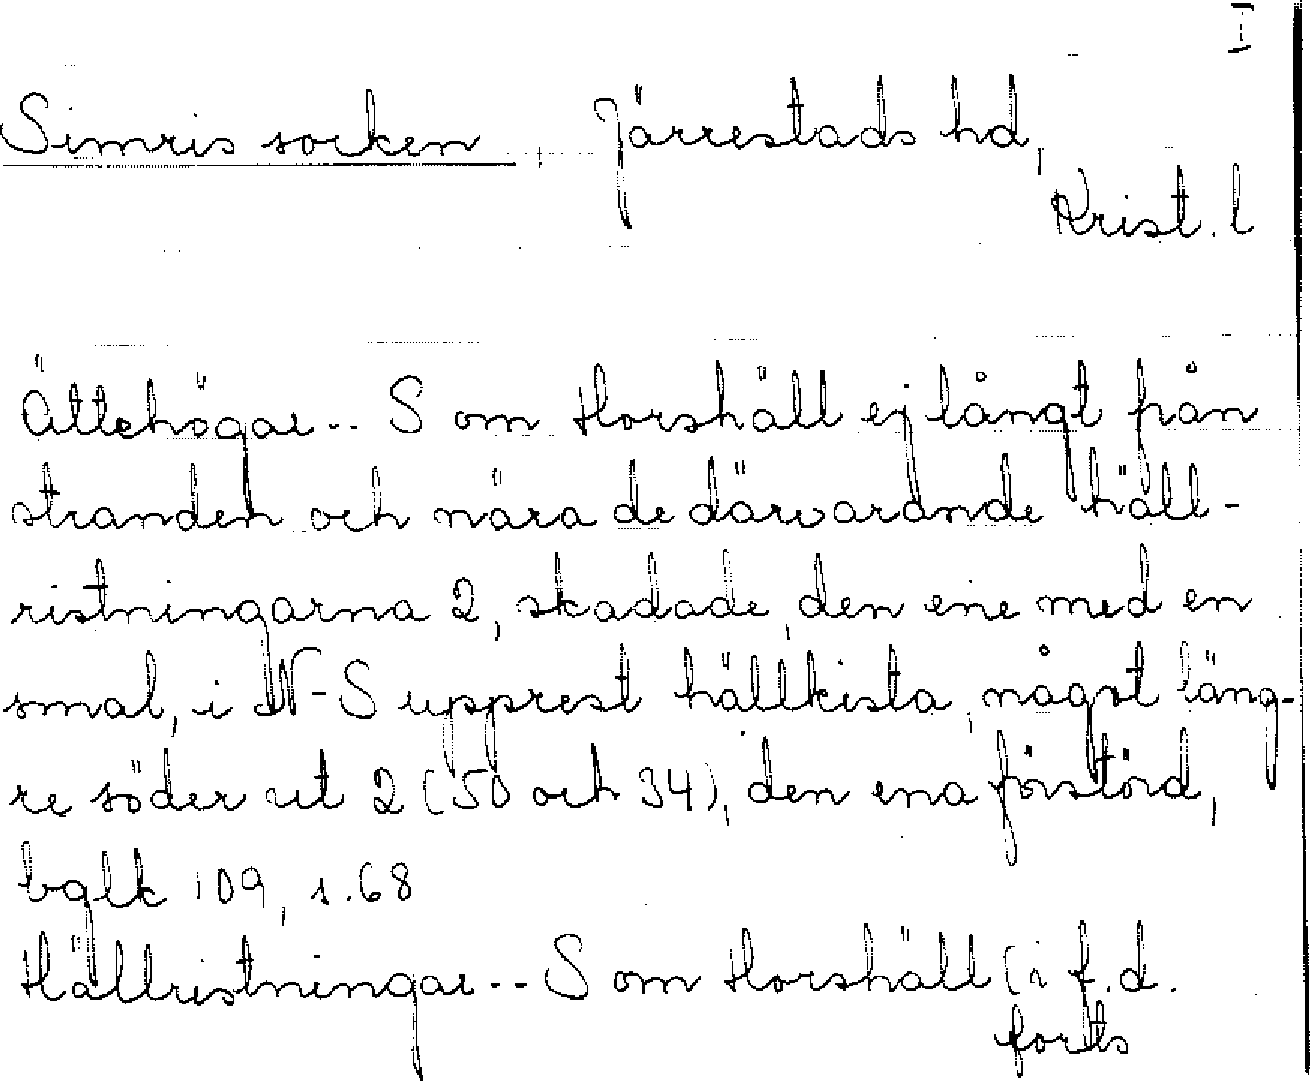 I
Simris socken, Järrestads hd,
Krist. l
Ättehögar -- S om Horshäll ej långt från
stranden och nära de därvarande häll-
ristningarna 2, skadade, den ene med en
smal, i N-S upprest hällkista, något läng-
re söder ut 2 (50 och 34), den ena förstörd,
bglk 109, s. 68
Hällristningar -- S om Horshäll (i f.d.
forts